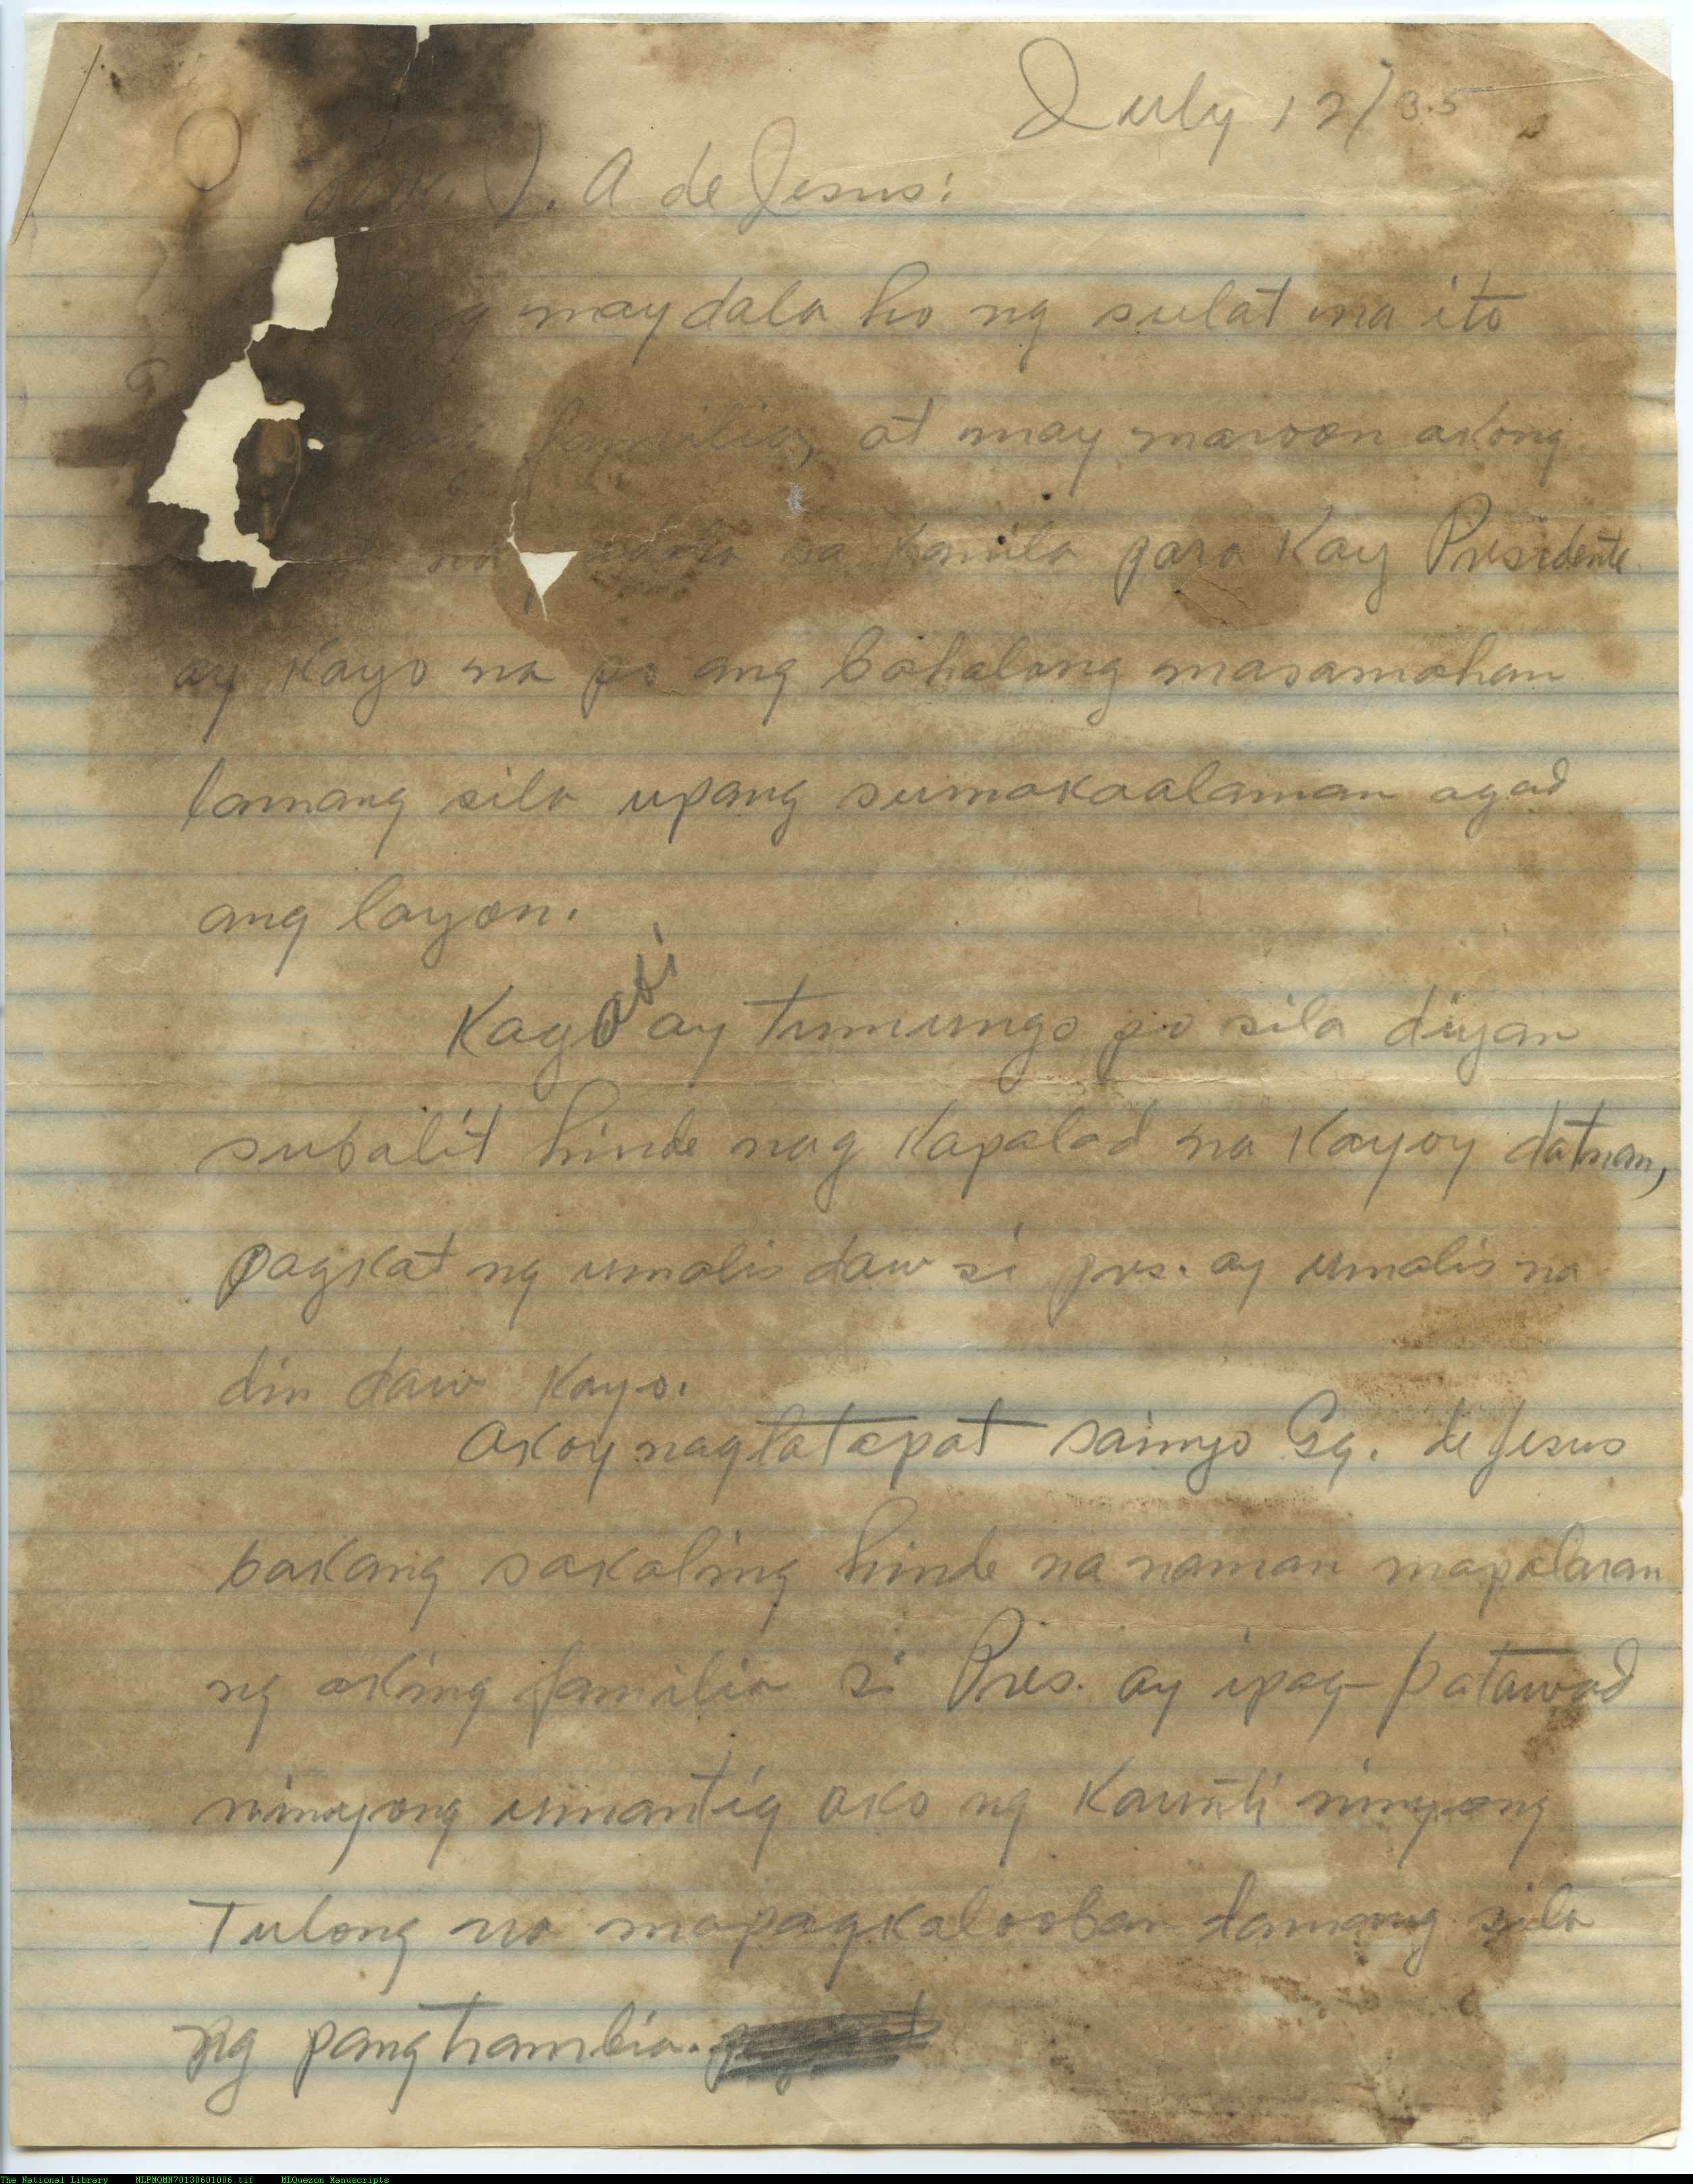 July 12/35
J. A de Jesus:
may dala ho ng sulat na ito
familia, at may maroon akong
na sa kanila para kay Presidente
ay kayo na po ang bahalang masamahan
lamang sila upang sumakaalaman agad
ang layon.
Kagabi ay tumungo po sila diyan
subalit hinde nag kapalad na kayoy datnan,
pagkat ng umalis daw si prs. ay umalis na
din daw kayo.
Akoy nagtatapat sainyo Gg. de Jesus
bakang sakaling hinde na naman mapalaran
ng aking familia si Pres. ay ipag-patawad
ninyong umantig ako ng kaunti ninyong
Tulong na mapagkalooban lamang sila
ng panghambia.
The National Library NLPMQMN70130601006.tif MLQuezon Manuscripts